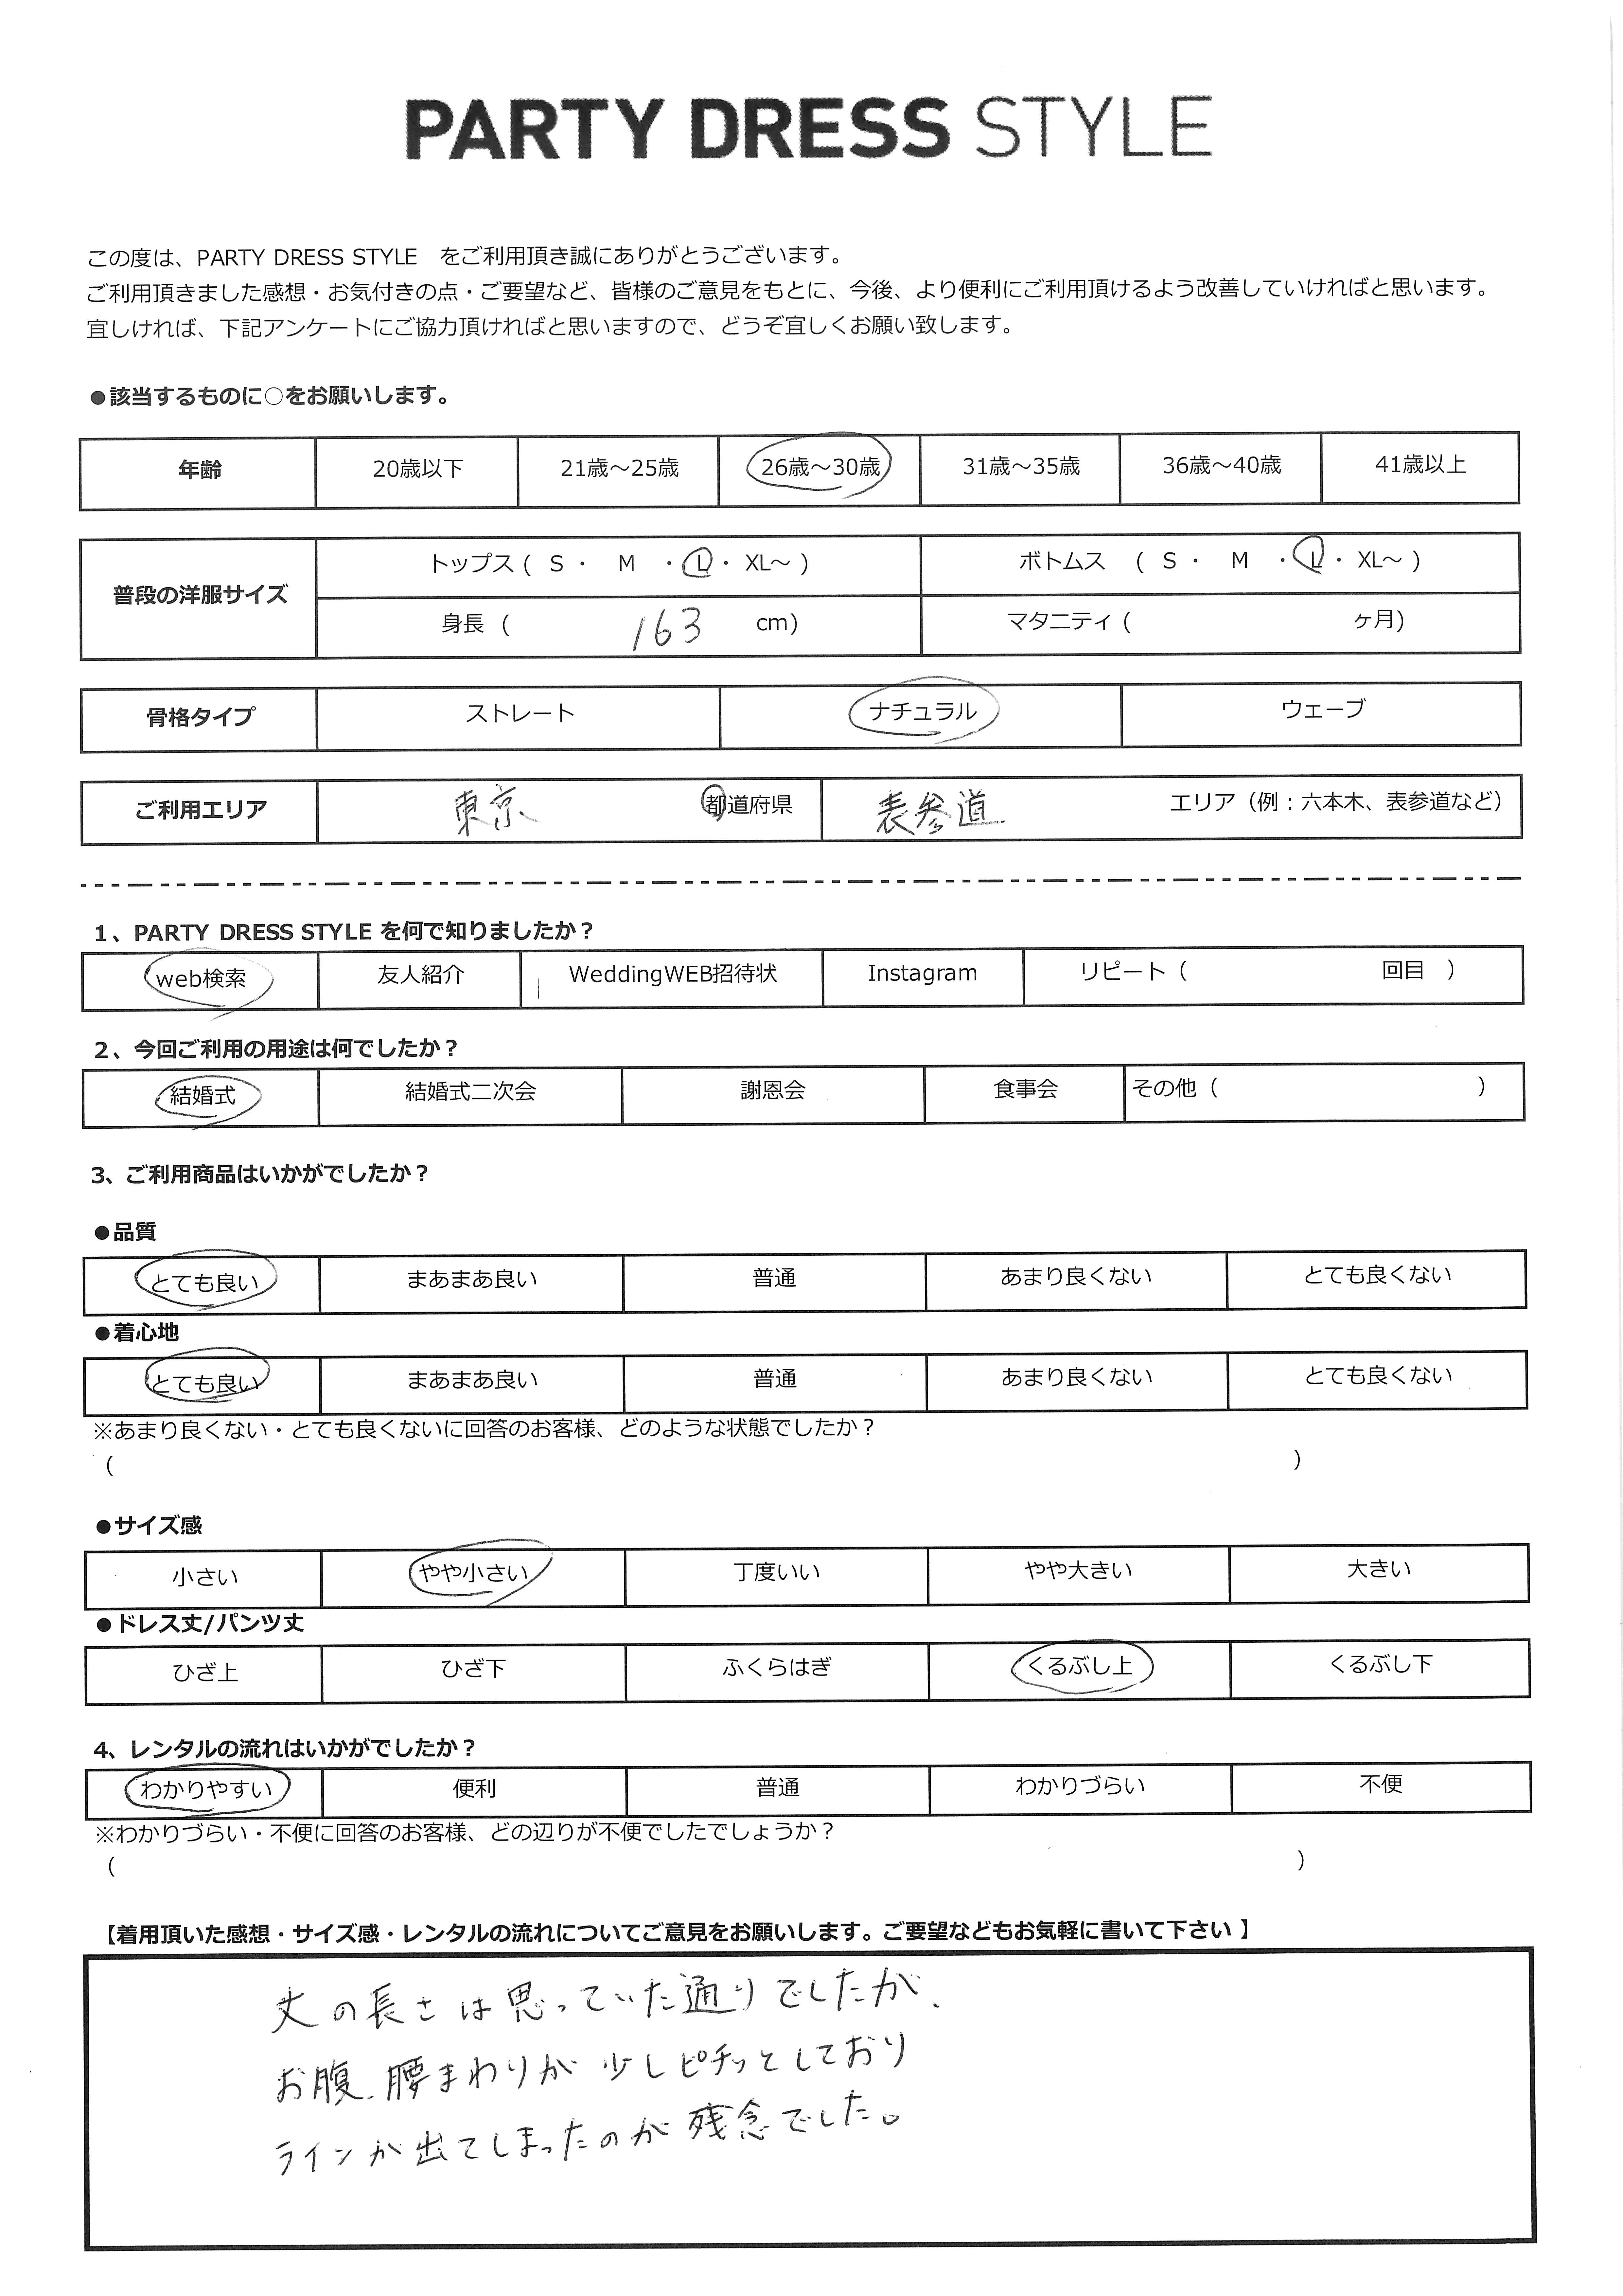 PARTY DRESS STYLE
この度は、PARTY DRESS STYLE　をご利用頂き誠にありがとうございます。
ご利用頂きました感想・お気付きの点・ご要望など、皆様のご意見をもとに、今後、より便利にご利用頂けるよう改善していければと思います。
宜しければ、下記アンケートにご協力頂ければと思いますので、どうぞ宜しくお願い致します。
●該当するものに○をお願いします。
年齢 20歳以下 21歳～25歳 26歳～30歳 31歳～35歳 36歳～40歳 41歳以上
普段の洋服サイズ
トップス ( S ・ M ・ L ・ XL～ ) ボトムス ( S ・ M ・ L ・ XL～ )
身長 ( 163 cm) マタニティ ( ヶ月)
骨格タイプ ストレート ナチュラル ウェーブ
ご利用エリア 東京 都道府県 表参道 エリア（例：六本木、表参道など）
1、PARTY DRESS STYLE を何で知りましたか？
web検索 友人紹介 WeddingWEB招待状 Instagram リピート（ 回目 ）
2、今回ご利用の用途は何でしたか？
結婚式 結婚式二次会 謝恩会 食事会 その他（ ）
3、ご利用商品はいかがでしたか？
●品質
とても良い まあまあ良い 普通 あまり良くない とても良くない
●着心地
とても良い まあまあ良い 普通 あまり良くない とても良くない
※あまり良くない・とても良くないに回答のお客様、どのような状態でしたか？
（ ）
●サイズ感
小さい やや小さい 丁度いい やや大きい 大きい
●ドレス丈/パンツ丈
ひざ上 ひざ下 ふくらはぎ くるぶし上 くるぶし下
4、レンタルの流れはいかがでしたか？
わかりやすい 便利 普通 わかりづらい 不便
※わかりづらい・不便に回答のお客様、どの辺りが不便でしたでしょうか？
（ ）
【着用頂いた感想・サイズ感・レンタルの流れについてご意見をお願いします。ご要望などもお気軽に書いて下さい 】
丈の長さは思っていた通りでしたが、
お腹、腰まわりが少しピチッとしており
ラインが出てしまったのが残念でした。